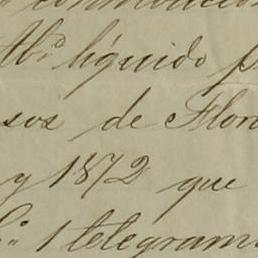 líquido p
sos de Flor
y 1872 que
1 telegram